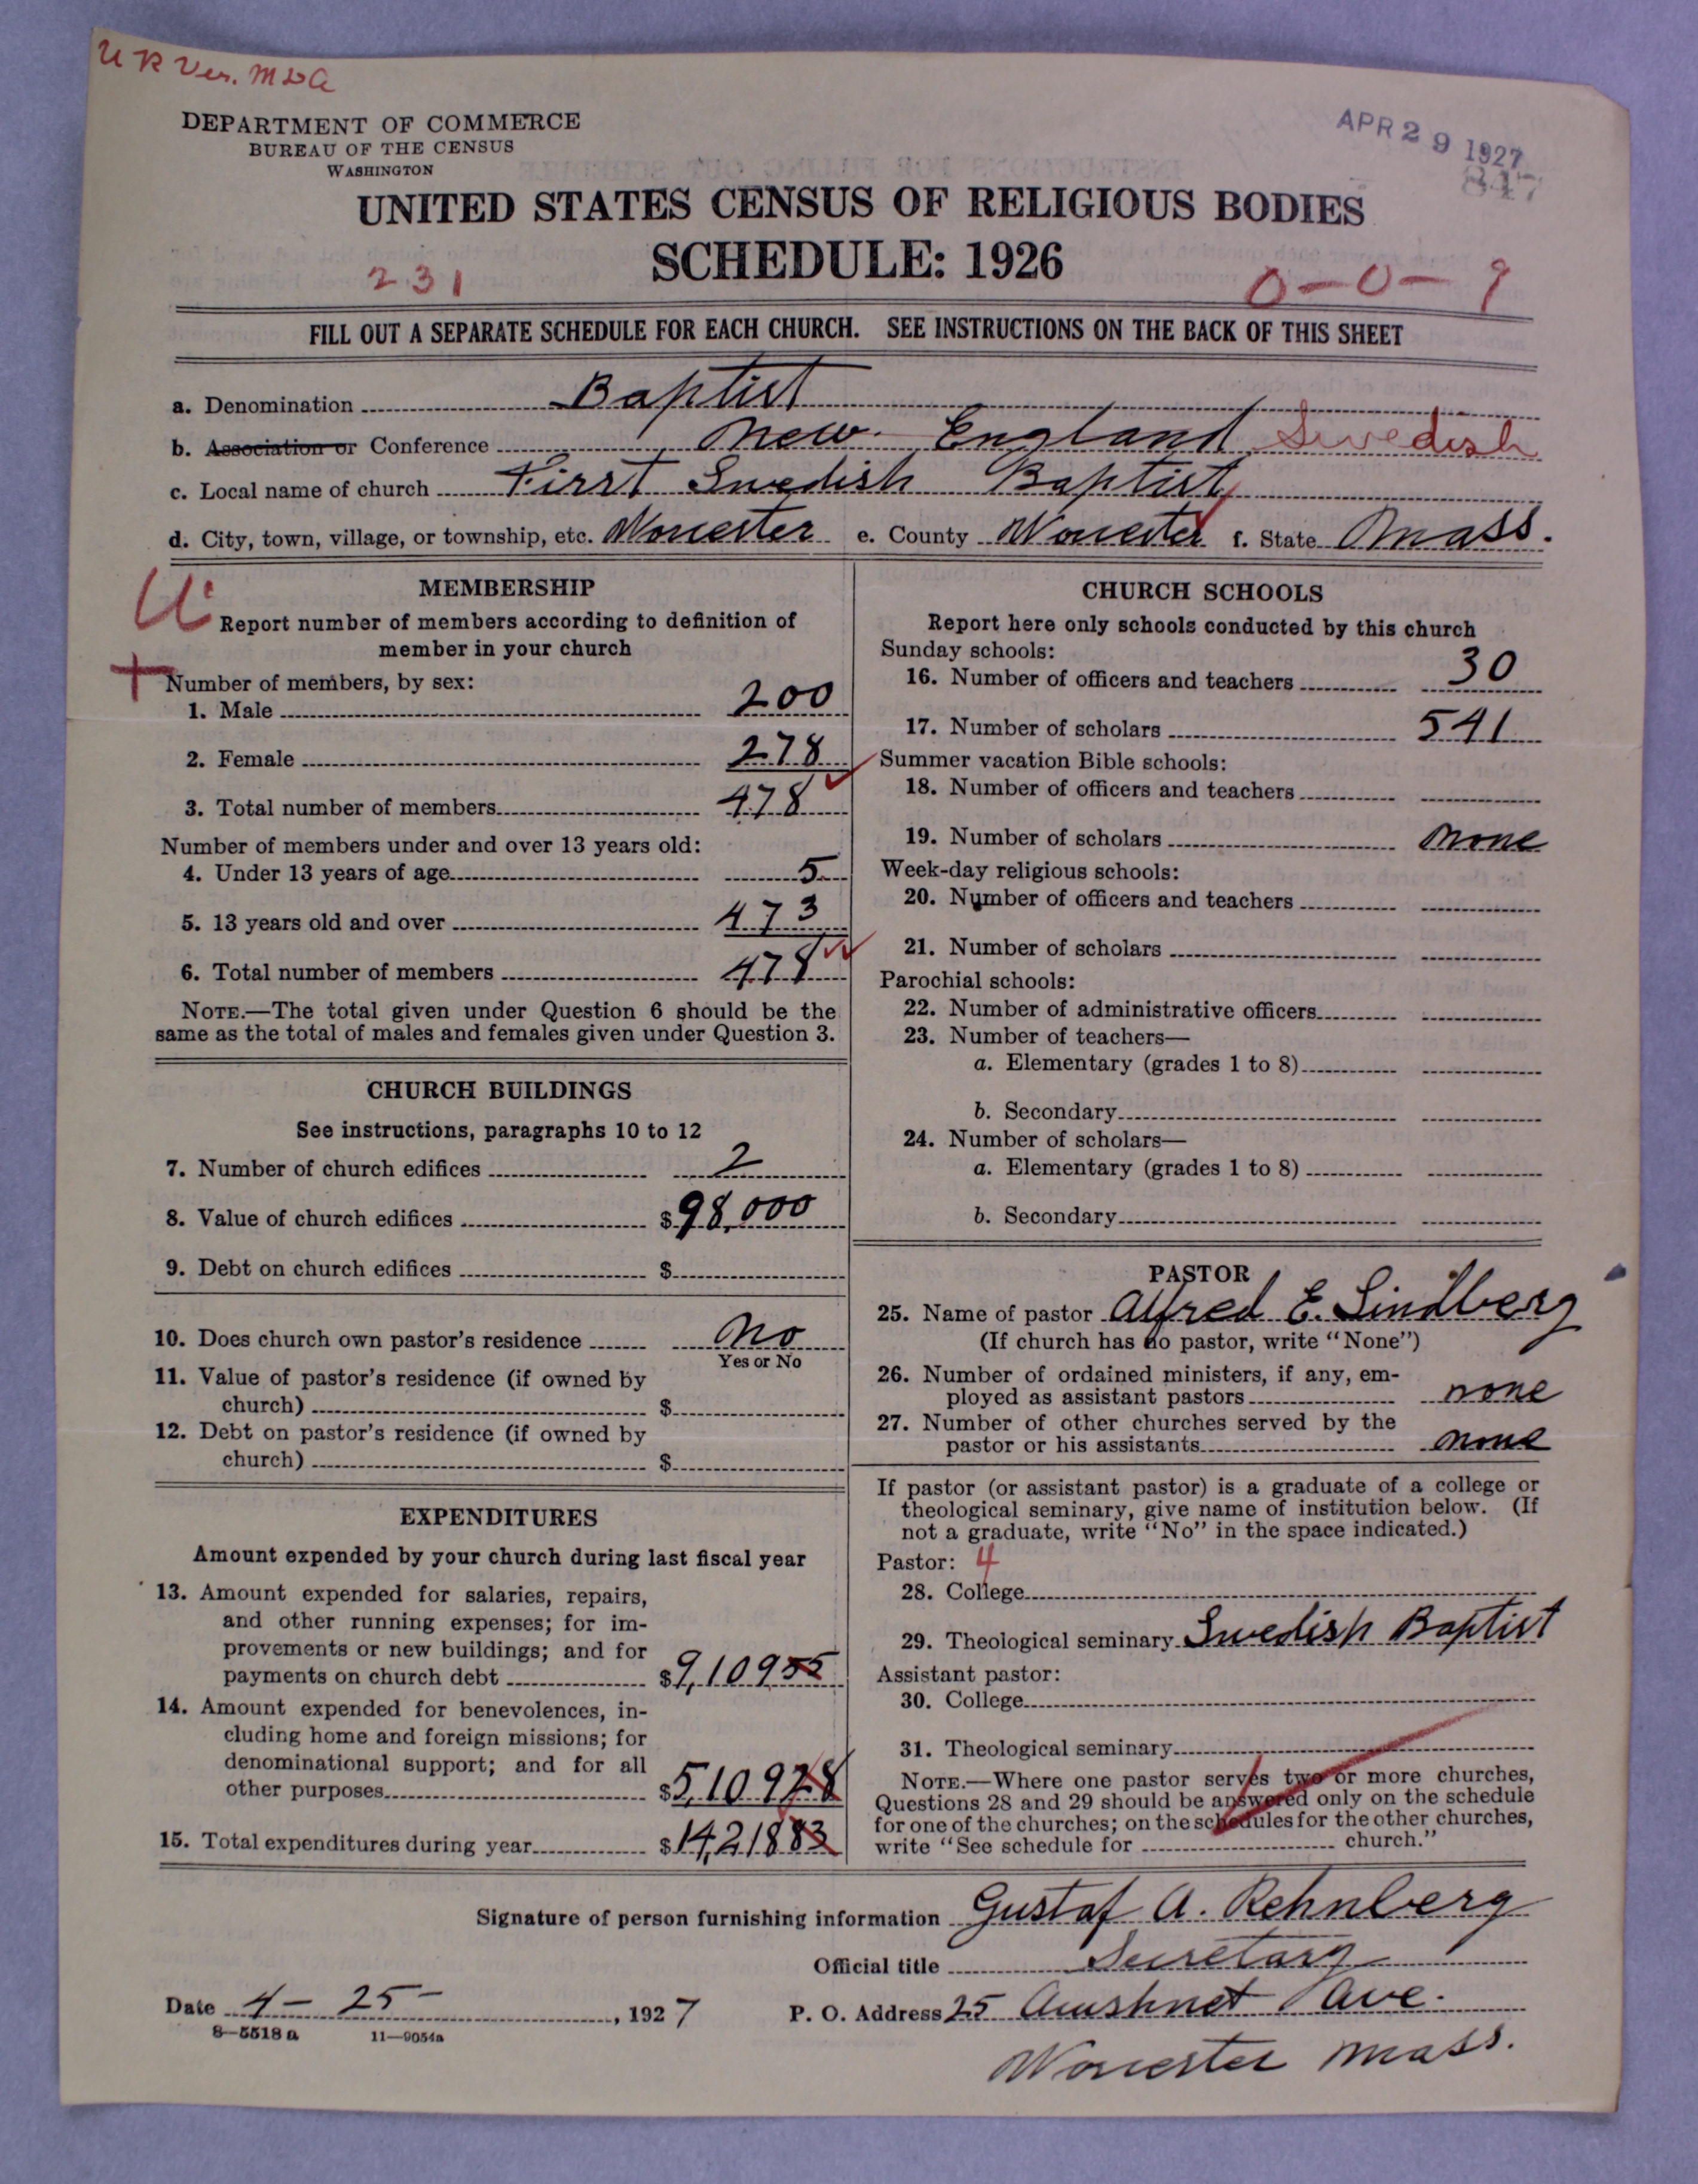 U R Ver. M D A
DEPARTMENT OF COMMERCE
BUREAU OF THE CENSUS
WASHINGTON
APR 29 1927
847
UNITED STATES CENSUS OF RELIGIOUS BODIES
SCHEDULE: 1926
231
0-0-9
FILL OUT A SEPARATE SCHEDULE FOR EACH CHURCH. SEE INSTRUCTIONS ON THE BACK OF THIS SHEET
a. Denomination Baptist
b. Association or Conference New England Swedish
c. Local name of church First Swedish Baptist
d. City, town, village, or township, etc. Worcester e. County Worcester f. State Mass.
MEMBERSHIP
Report number of members according to definition of
member in your church
Number of members, by sex:
1. Male 200
2. Female 278
3. Total number of members 478
Number of members under and over 13 years old:
4. Under 13 years of age 5
5. 13 years old and over 473
6. Total number of members 478
NOTE.—The total given under Question 6 should be the
same as the total of males and females given under Question 3.
CHURCH BUILDINGS
See instructions, paragraphs 10 to 12
7. Number of church edifices 2
8. Value of church edifices $98,000
9. Debt on church edifices $
10. Does church own pastor's residence No
Yes or No
11. Value of pastor's residence (if owned by
church) $
12. Debt on pastor's residence (if owned by
church) $
EXPENDITURES
Amount expended by your church during last fiscal year
13. Amount expended for salaries, repairs,
and other running expenses; for im-
provements or new buildings; and for
payments on church debt $9,109 55
14. Amount expended for benevolences, in-
cluding home and foreign missions; for
denominational support; and for all
other purposes $5,109 28
15. Total expenditures during year $14,218 83
CHURCH SCHOOLS
Report here only schools conducted by this church
Sunday schools:
16. Number of officers and teachers 30
17. Number of scholars 541
Summer vacation Bible schools:
18. Number of officers and teachers
19. Number of scholars None
Week-day religious schools:
20. Number of officers and teachers
21. Number of scholars
Parochial schools:
22. Number of administrative officers
23. Number of teachers—
a. Elementary (grades 1 to 8)
b. Secondary
24. Number of scholars—
a. Elementary (grades 1 to 8)
b. Secondary
PASTOR
25. Name of pastor Alfred E. Lindberg
(If church has no pastor, write "None")
26. Number of ordained ministers, if any, em-
ployed as assistant pastors none
27. Number of other churches served by the
pastor or his assistants none
If pastor (or assistant pastor) is a graduate of a college or
theological seminary, give name of institution below. (If
not a graduate, write "No" in the space indicated.)
Pastor: 4
28. College
29. Theological seminary Swedish Baptist
Assistant pastor:
30. College
31. Theological seminary
NOTE.—Where one pastor serves two or more churches,
Questions 28 and 29 should be answered only on the schedule
for one of the churches; on the schedules for the other churches,
write "See schedule for church."
Signature of person furnishing information Gustaf A. Rehnberg
Official title Secretary
Date 4-25- , 1927 P. O. Address 25 Acushnet Ave.
8-5518 a 11-9054a
Worcester Mass.